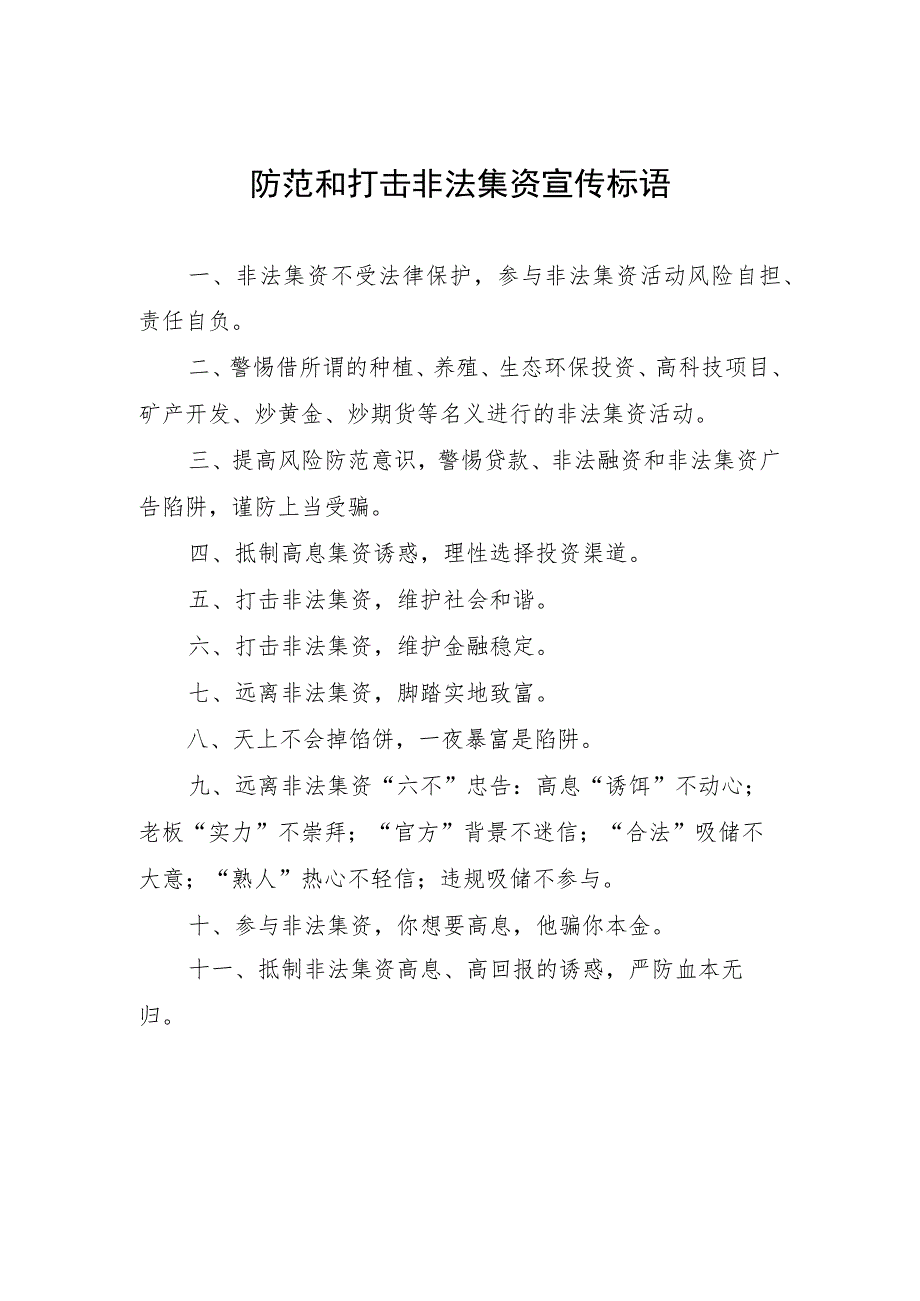 防范和打击非法集资宣传标语
一、非法集资不受法律保护，参与非法集资活动风险自担、
责任自负。
二、警惕借所谓的种植、养殖、生态环保投资、高科技项目、
矿产开发、炒黄金、炒期货等名义进行的非法集资活动。
三、提高风险防范意识，警惕贷款、非法融资和非法集资广
告陷阱，谨防上当受骗。
四、抵制高息集资诱惑，理性选择投资渠道。
五、打击非法集资，维护社会和谐。
六、打击非法集资，维护金融稳定。
七、远离非法集资，脚踏实地致富。
八、天上不会掉馅饼，一夜暴富是陷阱。
九、远离非法集资“六不”忠告：高息“诱饵”不动心；
老板“实力”不崇拜；“官方”背景不迷信；“合法”吸储不
大意；“熟人”热心不轻信；违规吸储不参与。
十、参与非法集资，你想要高息，他骗你本金。
十一、抵制非法集资高息、高回报的诱惑，严防血本无
归。